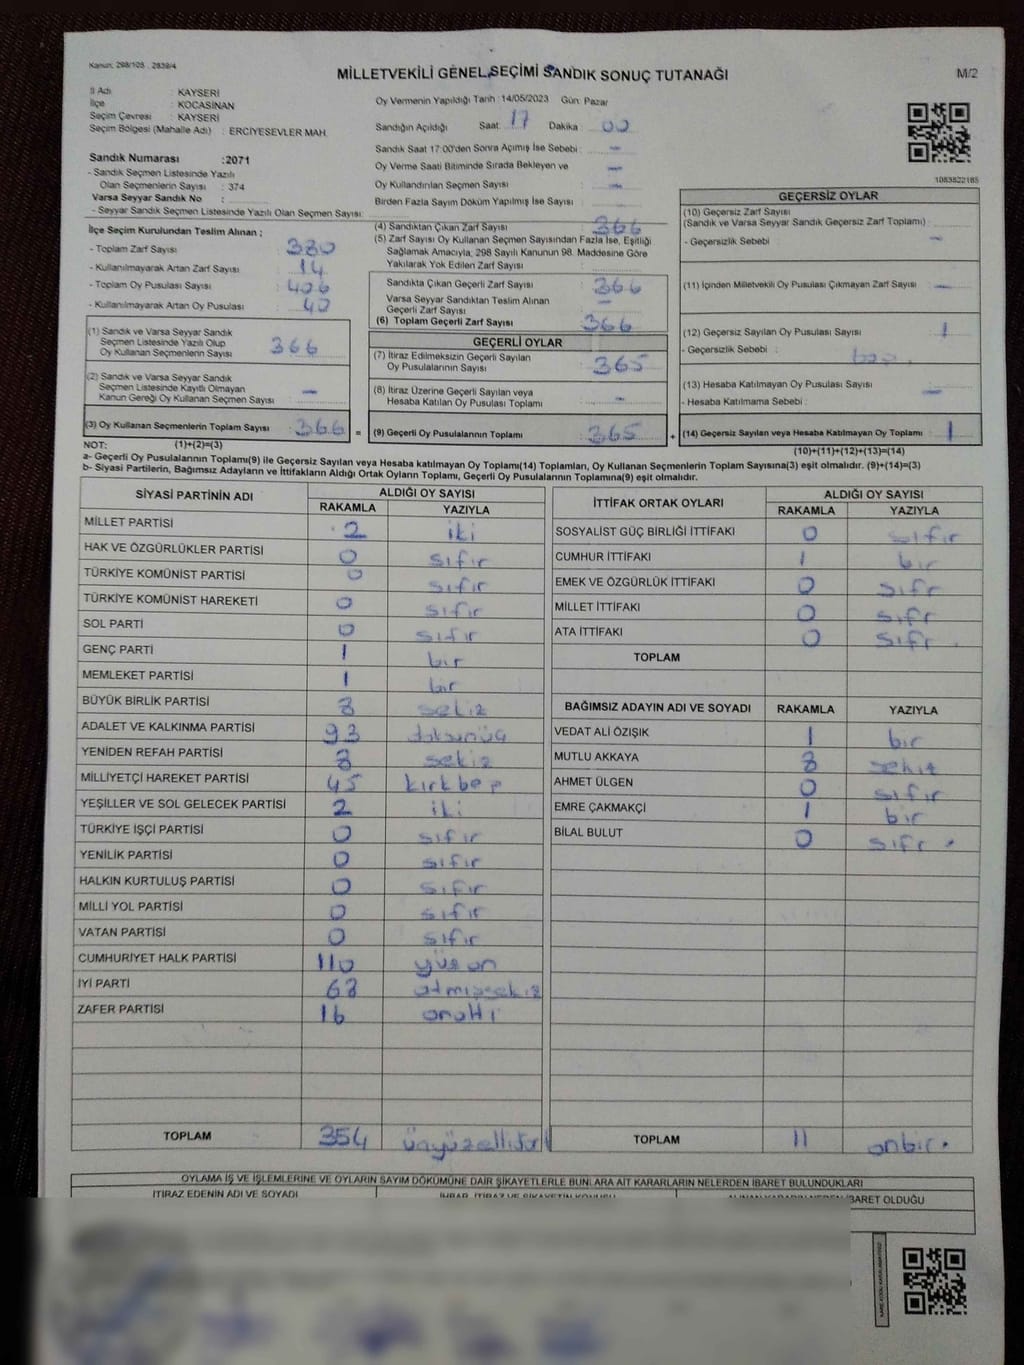 Kanun: 298/105 . 2839/4
MİLLETVEKİLİ GENEL SEÇİMİ SANDIK SONUÇ TUTANAĞI
M/2
İl Adı : KAYSERİ
İlçe : KOCASİNAN
Seçim Çevresi : KAYSERİ
Seçim Bölgesi (Mahalle Adı) : ERCİYESEVLER MAH.
Oy Vermenin Yapıldığı Tarih : 14/05/2023 Gün: Pazar
Sandığın Açıldığı Saat: 17 Dakika 00
Sandık Saat 17:00'den Sonra Açımış İse Sebebi : -
Oy Verme Saati Bitiminde Sırada Bekleyen ve -
Oy Kullandırılan Seçmen Sayısı : -
Birden Fazla Sayım Döküm Yapılmış İse Sayısı : -
1083822185
Sandık Numarası :2071
- Sandık Seçmen Listesinde Yazılı
Olan Seçmenlerin Sayısı : 374
Varsa Seyyar Sandık No :
- Seyyar Sandık Seçmen Listesinde Yazılı Olan Seçmen Sayısı:
İlçe Seçim Kurulundan Teslim Alınan ;
- Toplam Zarf Sayısı : 380
- Kullanılmayarak Artan Zarf Sayısı : 14
- Toplam Oy Pusulası Sayısı : 406
- Kullanılmayarak Artan Oy Pusulası : 40
(1) Sandık ve Varsa Seyyar Sandık
Seçmen Listesinde Yazılı Olup
Oy Kullanan Seçmenlerin Sayısı : 366
(2) Sandık ve Varsa Seyyar Sandık
Seçmen Listesinde Kayıtlı Olmayan
Kanun Gereği Oy Kullanan Seçmen Sayısı : -
(3) Oy Kullanan Seçmenlerin Toplam Sayısı : 366 =
(4) Sandıktan Çıkan Zarf Sayısı : 366
(5) Zarf Sayısı Oy Kullanan Seçmen Sayısından Fazla İse, Eşitliği
Sağlamak Amacıyla; 298 Sayılı Kanunun 98. Maddesine Göre
Yakılarak Yok Edilen Zarf Sayısı :
Sandıkta Çıkan Geçerli Zarf Sayısı : 366
Varsa Seyyar Sandıktan Teslim Alınan
Geçerli Zarf Sayısı : -
(6) Toplam Geçerli Zarf Sayısı : 366
GEÇERLİ OYLAR
(7) İtiraz Edilmeksizin Geçerli Sayılan
Oy Pusulalarının Sayısı : 365
(8) İtiraz Üzerine Geçerli Sayılan veya
Hesaba Katılan Oy Pusulası Toplamı : -
(9) Geçerli Oy Pusulalarının Toplamı : 365 +
GEÇERSİZ OYLAR
(10) Geçersiz Zarf Sayısı
(Sandık ve Varsa Seyyar Sandık Geçersiz Zarf Toplamı) :
- Geçersizlik Sebebi : -
(11) İçinden Milletvekili Oy Pusulası Çıkmayan Zarf Sayısı : -
(12) Geçersiz Sayılan Oy Pusulası Sayısı : 1
- Geçersizlik Sebebi :
(13) Hesaba Katılmayan Oy Pusulası Sayısı :
- Hesaba Katılmama Sebebi : -
(14) Geçersiz Sayılan veya Hesaba Katılmayan Oy Toplamı : 1
NOT: (1)+(2)=(3)
(10)+(11)+(12)+(13)=(14)
a- Geçerli Oy Pusulalarının Toplamı(9) ile Geçersiz Sayılan veya Hesaba katılmayan Oy Toplamı(14) Toplamları, Oy Kullanan Seçmenlerin Toplam Sayısına(3) eşit olmalıdır. (9)+(14)=(3)
b- Siyasi Partilerin, Bağımsız Adayların ve İttifakların Aldığı Ortak Oyların Toplamı, Geçerli Oy Pusulalarının Toplamına(9) eşit olmalıdır.
SİYASİ PARTİNİN ADI ALDIĞI OY SAYISI
RAKAMLA YAZIYLA
MİLLET PARTİSİ 2 iki
HAK VE ÖZGÜRLÜKLER PARTİSİ 0 sıfır
TÜRKİYE KOMÜNİST PARTİSİ 0 sıfır
TÜRKİYE KOMÜNİST HAREKETİ 0 sıfır
SOL PARTİ 0 sıfır
GENÇ PARTİ 1 bir
MEMLEKET PARTİSİ 1 bir
BÜYÜK BİRLİK PARTİSİ 8 sekiz
ADALET VE KALKINMA PARTİSİ 93 doksanüç
YENİDEN REFAH PARTİSİ 8 sekiz
MİLLİYETÇİ HAREKET PARTİSİ 45 kırkbeş
YEŞİLLER VE SOL GELECEK PARTİSİ 2 iki
TÜRKİYE İŞÇİ PARTİSİ 0 sıfır
YENİLİK PARTİSİ 0 sıfır
HALKIN KURTULUŞ PARTİSİ 0 sıfır
MİLLİ YOL PARTİSİ 0 sıfır
VATAN PARTİSİ 0 sıfır
CUMHURİYET HALK PARTİSİ 110 yüzon
İYİ PARTİ 68 atmışsekiz
ZAFER PARTİSİ 16 onaltı
TOPLAM 354 üçyüzellidört
İTTİFAK ORTAK OYLARI ALDIĞI OY SAYISI
RAKAMLA YAZIYLA
SOSYALİST GÜÇ BİRLİĞİ İTTİFAKI 0 sıfır
CUMHUR İTTİFAKI 1 bir
EMEK VE ÖZGÜRLÜK İTTİFAKI 0 sıfr
MİLLET İTTİFAKI 0 sıfr
ATA İTTİFAKI 0 sıfr
TOPLAM
BAĞIMSIZ ADAYIN ADI VE SOYADI RAKAMLA YAZIYLA
VEDAT ALİ ÖZIŞIK 1 bir
MUTLU AKKAYA 8 sekiz
AHMET ÜLGEN 0 sıfır
EMRE ÇAKMAKÇİ 1 bir
BİLAL BULUT 0 sıfr
TOPLAM 11 onbir.
OYLAMA İŞ VE İŞLEMLERİNE VE OYLARIN SAYIM DÖKÜMÜNE DAİR ŞİKAYETLERLE BUNLARA AİT KARARLARIN NELERDEN İBARET BULUNDUKLARI
İTİRAZ EDENİN ADI VE SOYADI
İBARET OLDUĞU